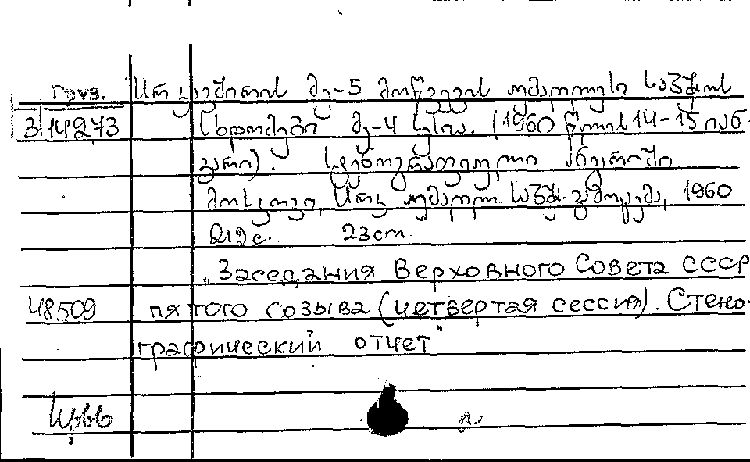 груз. სსრ კავშირის მე-5 მოწვევის უმაღლესი საბჭოს
3 14273 სხდომები მე-4 სესია. (1960 წლის 14-15 იან-
ვარი). სტენოგრაფიული ანგარიში
მოსკოვი, სსრკ უმაღლ. საბჭ. გამოცემა, 1960
212 с. 23 cm.
„Заседания Верховного Совета СССР
48509 пятого созыва (четвертая сессия). Стено-
графический отчет"